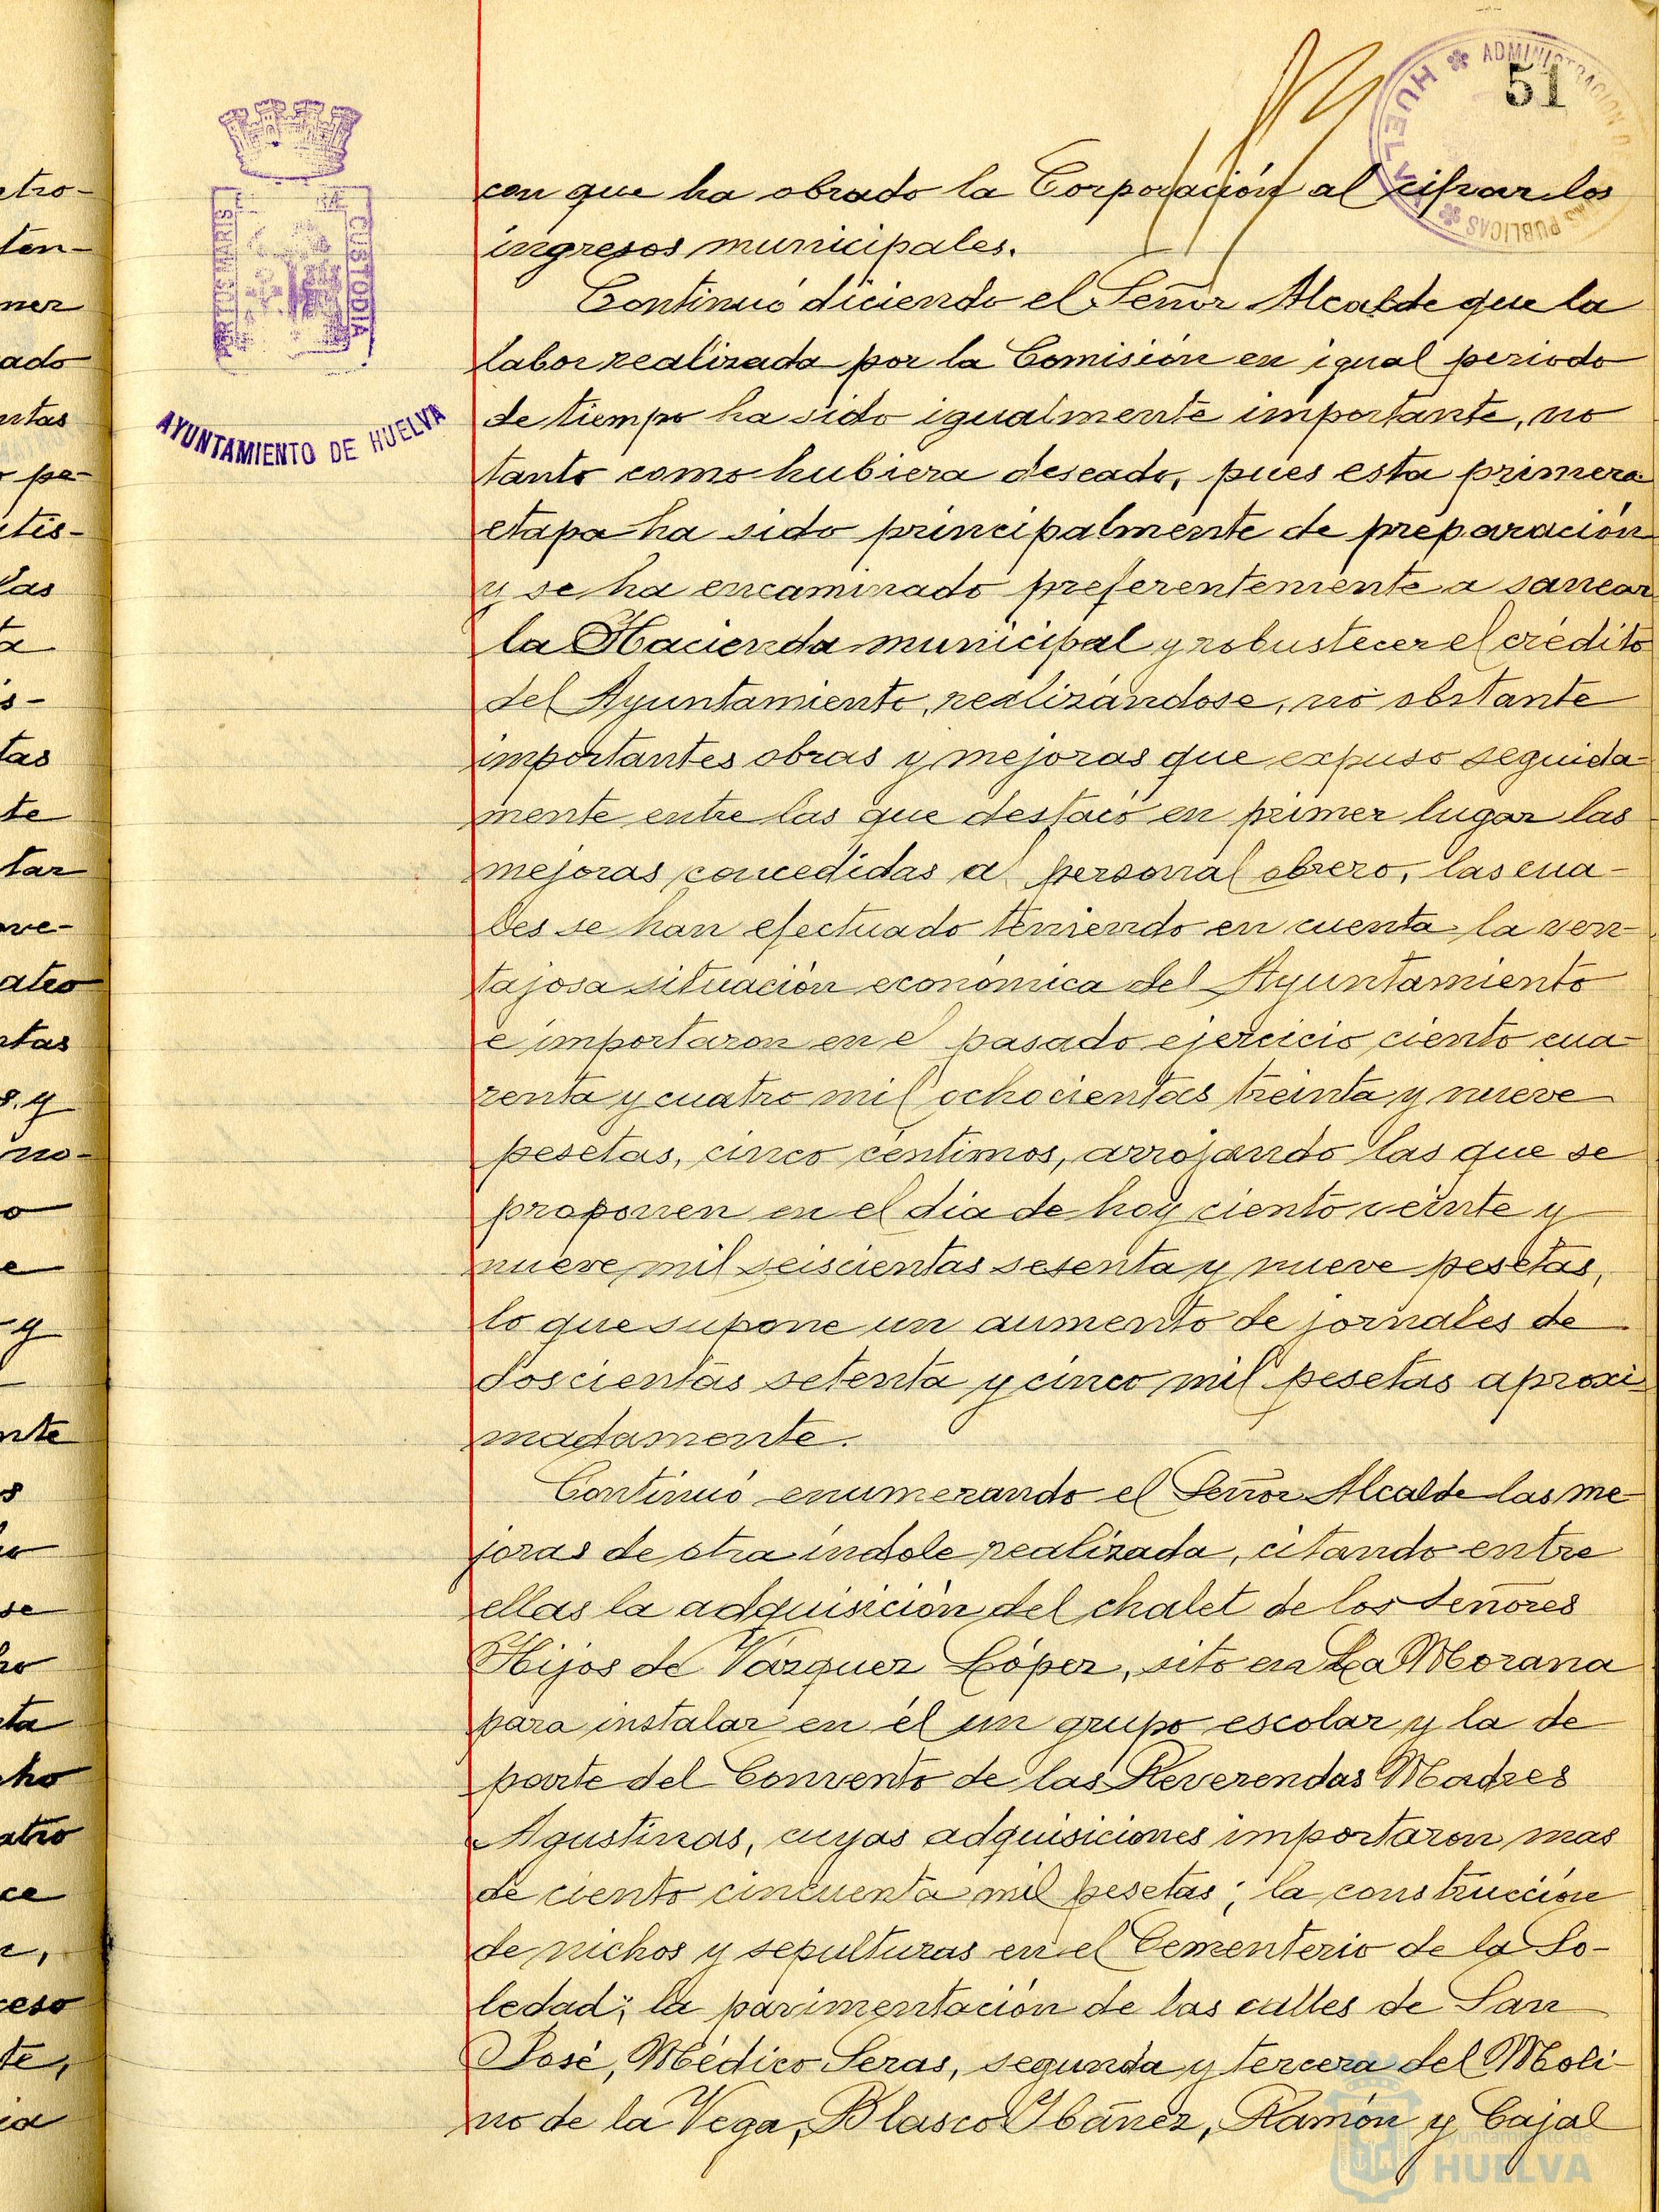 51
ADMINISTRACION
PUBLICAS
HUELVA
PORTUS MARIS
CUSTODIA
AYUNTAMIENTO DE HUELVA
con que ha obrado la Corporación al cifrar los
ingresos municipales.
Continuó diciendo el Señor Alcalde que la
labor realizada por la Comisión en igual periodo
de tiempo ha sido igualmente importante, no
tanto como hubiera deseado, pues esta primera
etapa ha sido principalmente de preparación
y se ha encaminado preferentemente a sanear
la Hacienda municipal y robustecer el crédito
del Ayuntamiento, realizándose, no obstante
importantes obras y mejoras que expuso seguida-
mente entre las que destacó en primer lugar las
mejoras concedidas al personal obrero, las cua-
les se han efectuado teniendo en cuenta la ven-
tajosa situación económica del Ayuntamiento
e importaron en el pasado ejercicio ciento cua-
renta y cuatro mil ochocientas treinta y nueve
pesetas, cinco céntimos, arrojando las que se
proponen en el día de hoy ciento veinte y
nueve mil seiscientas sesenta y nueve pesetas,
lo que supone un aumento de jornales de
doscientas setenta y cinco mil pesetas aproxi-
madamente.
Continuó enumerando el Señor Alcalde las me-
joras de otra índole realizada, citando entre
ellas la adquisición del chalet de los Señores
Hijos de Vázquez López, sito en La Morana
para instalar en él un grupo escolar y la de
parte del Convento de las Reverendas Madres
Agustinas, cuyas adquisiciones importaron mas
de ciento cincuenta mil pesetas; la construcción
de nichos y sepulturas en el Cementerio de la So-
ledad; la pavimentación de las calles de San
José, Médico Seras, segunda y tercera del Moli-
no de la Vega, Blasco Ibáñez, Ramón y Cajal
Ayuntamiento de
HUELVA